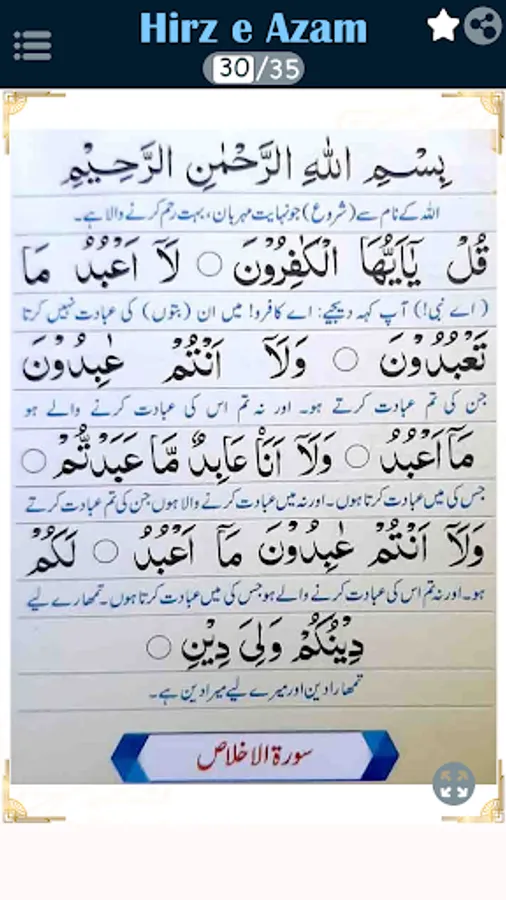 Hirz e Azam
30/35
بِسْمِ اللهِ الرَّحْمٰنِ الرَّحِيْمِ
اللہ کے نام سے (شروع) جو نہایت مہربان، بہت رحم کرنے والا ہے۔
قُلْ يٰٓاَيُّهَا الْكٰفِرُوْنَ ○ لَآ اَعْبُدُ مَا
(اے نبی!) آپ کہہ دیجیے: اے کافرو! میں ان (بتوں) کی عبادت نہیں کرتا
تَعْبُدُوْنَ ○ وَلَآ اَنْتُمْ عٰبِدُوْنَ
جن کی تم عبادت کرتے ہو۔ اور نہ تم اس کی عبادت کرنے والے ہو
مَآ اَعْبُدُ ○ وَلَآ اَنَا۠ عَابِدٌ مَّا عَبَدْتُّمْ ○
جس کی میں عبادت کرتا ہوں۔ اور نہ میں عبادت کرنے والا ہوں جن کی تم عبادت کرتے
وَلَآ اَنْتُمْ عٰبِدُوْنَ مَآ اَعْبُدُ ○ لَكُمْ
ہو۔ اور نہ تم اس کی عبادت کرنے والے ہو جس کی میں عبادت کرتا ہوں۔ تمھارے لیے
دِيْنُكُمْ وَلِيَ دِيْنِ ○
تمھارا دین اور میرے لیے میرا دین ہے۔
سورة الاخلاص